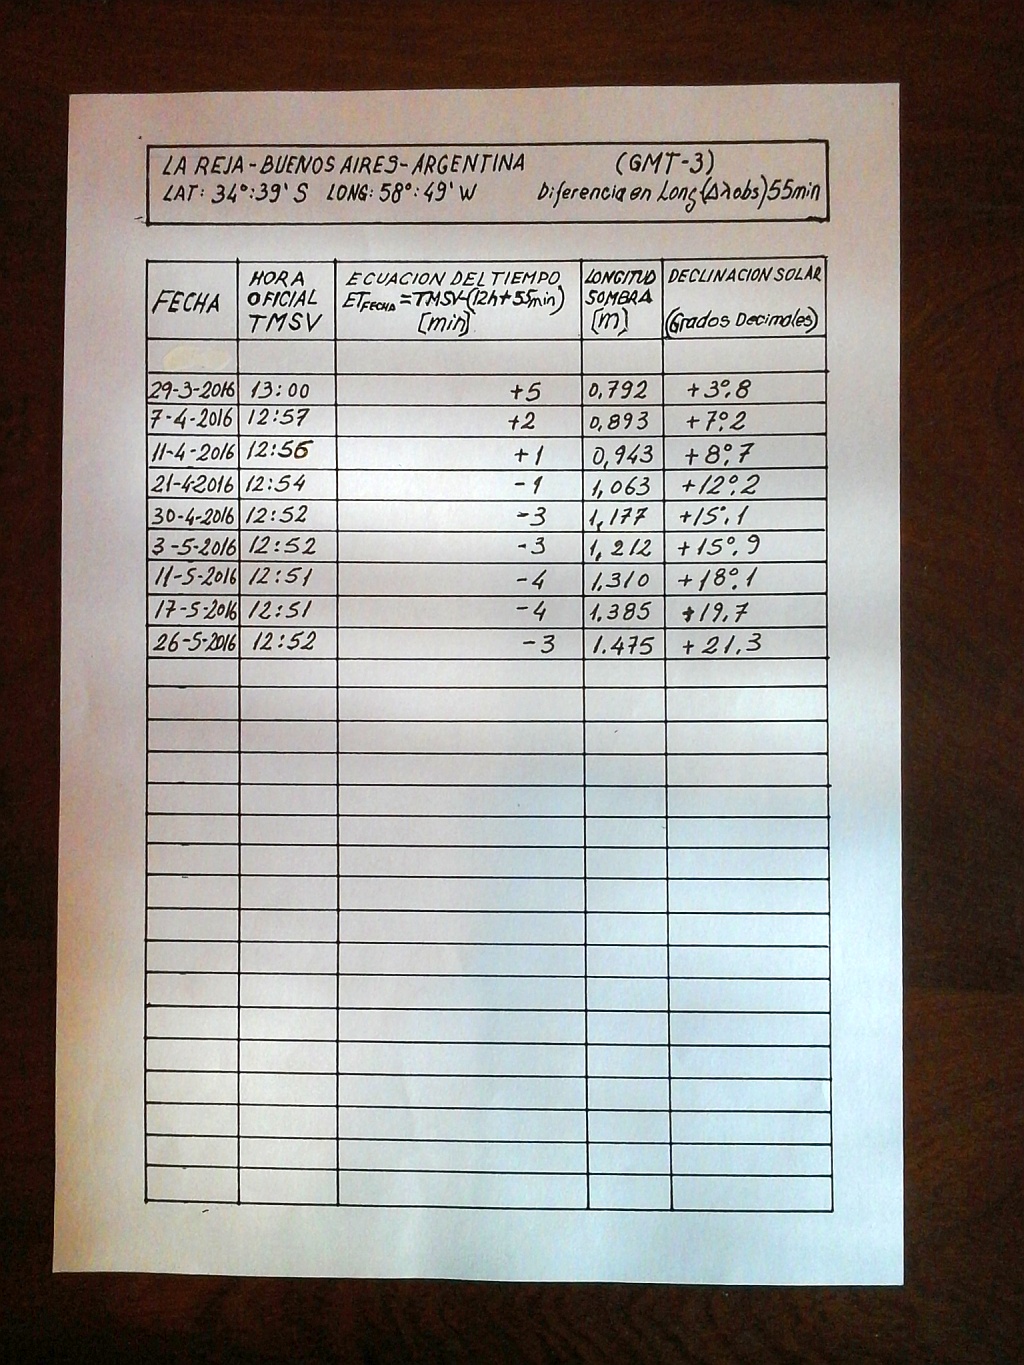 LA REJA - BUENOS AIRES - ARGENTINA (GMT-3)
LAT: 34°:39' S LONG: 58°:49' W Diferencia en Long (Δλobs) 55min
FECHA HORA OFICIAL TMSV ECUACION DEL TIEMPO ET FECHA = TMSV-(12h+55min) [min] LONGITUD SOMBRA [m] DECLINACION SOLAR (Grados Decimales)
29-3-2016 13:00 +5 0,792 +3°,8
7-4-2016 12:57 +2 0,893 +7°,2
11-4-2016 12:56 +1 0,943 +8°,7
21-4-2016 12:54 -1 1,063 +12°,2
30-4-2016 12:52 -3 1,177 +15°,1
3-5-2016 12:52 -3 1,212 +15°,9
11-5-2016 12:51 -4 1.310 +18°,1
17-5-2016 12:51 -4 1.385 +19,7
26-5-2016 12:52 -3 1.475 +21,3